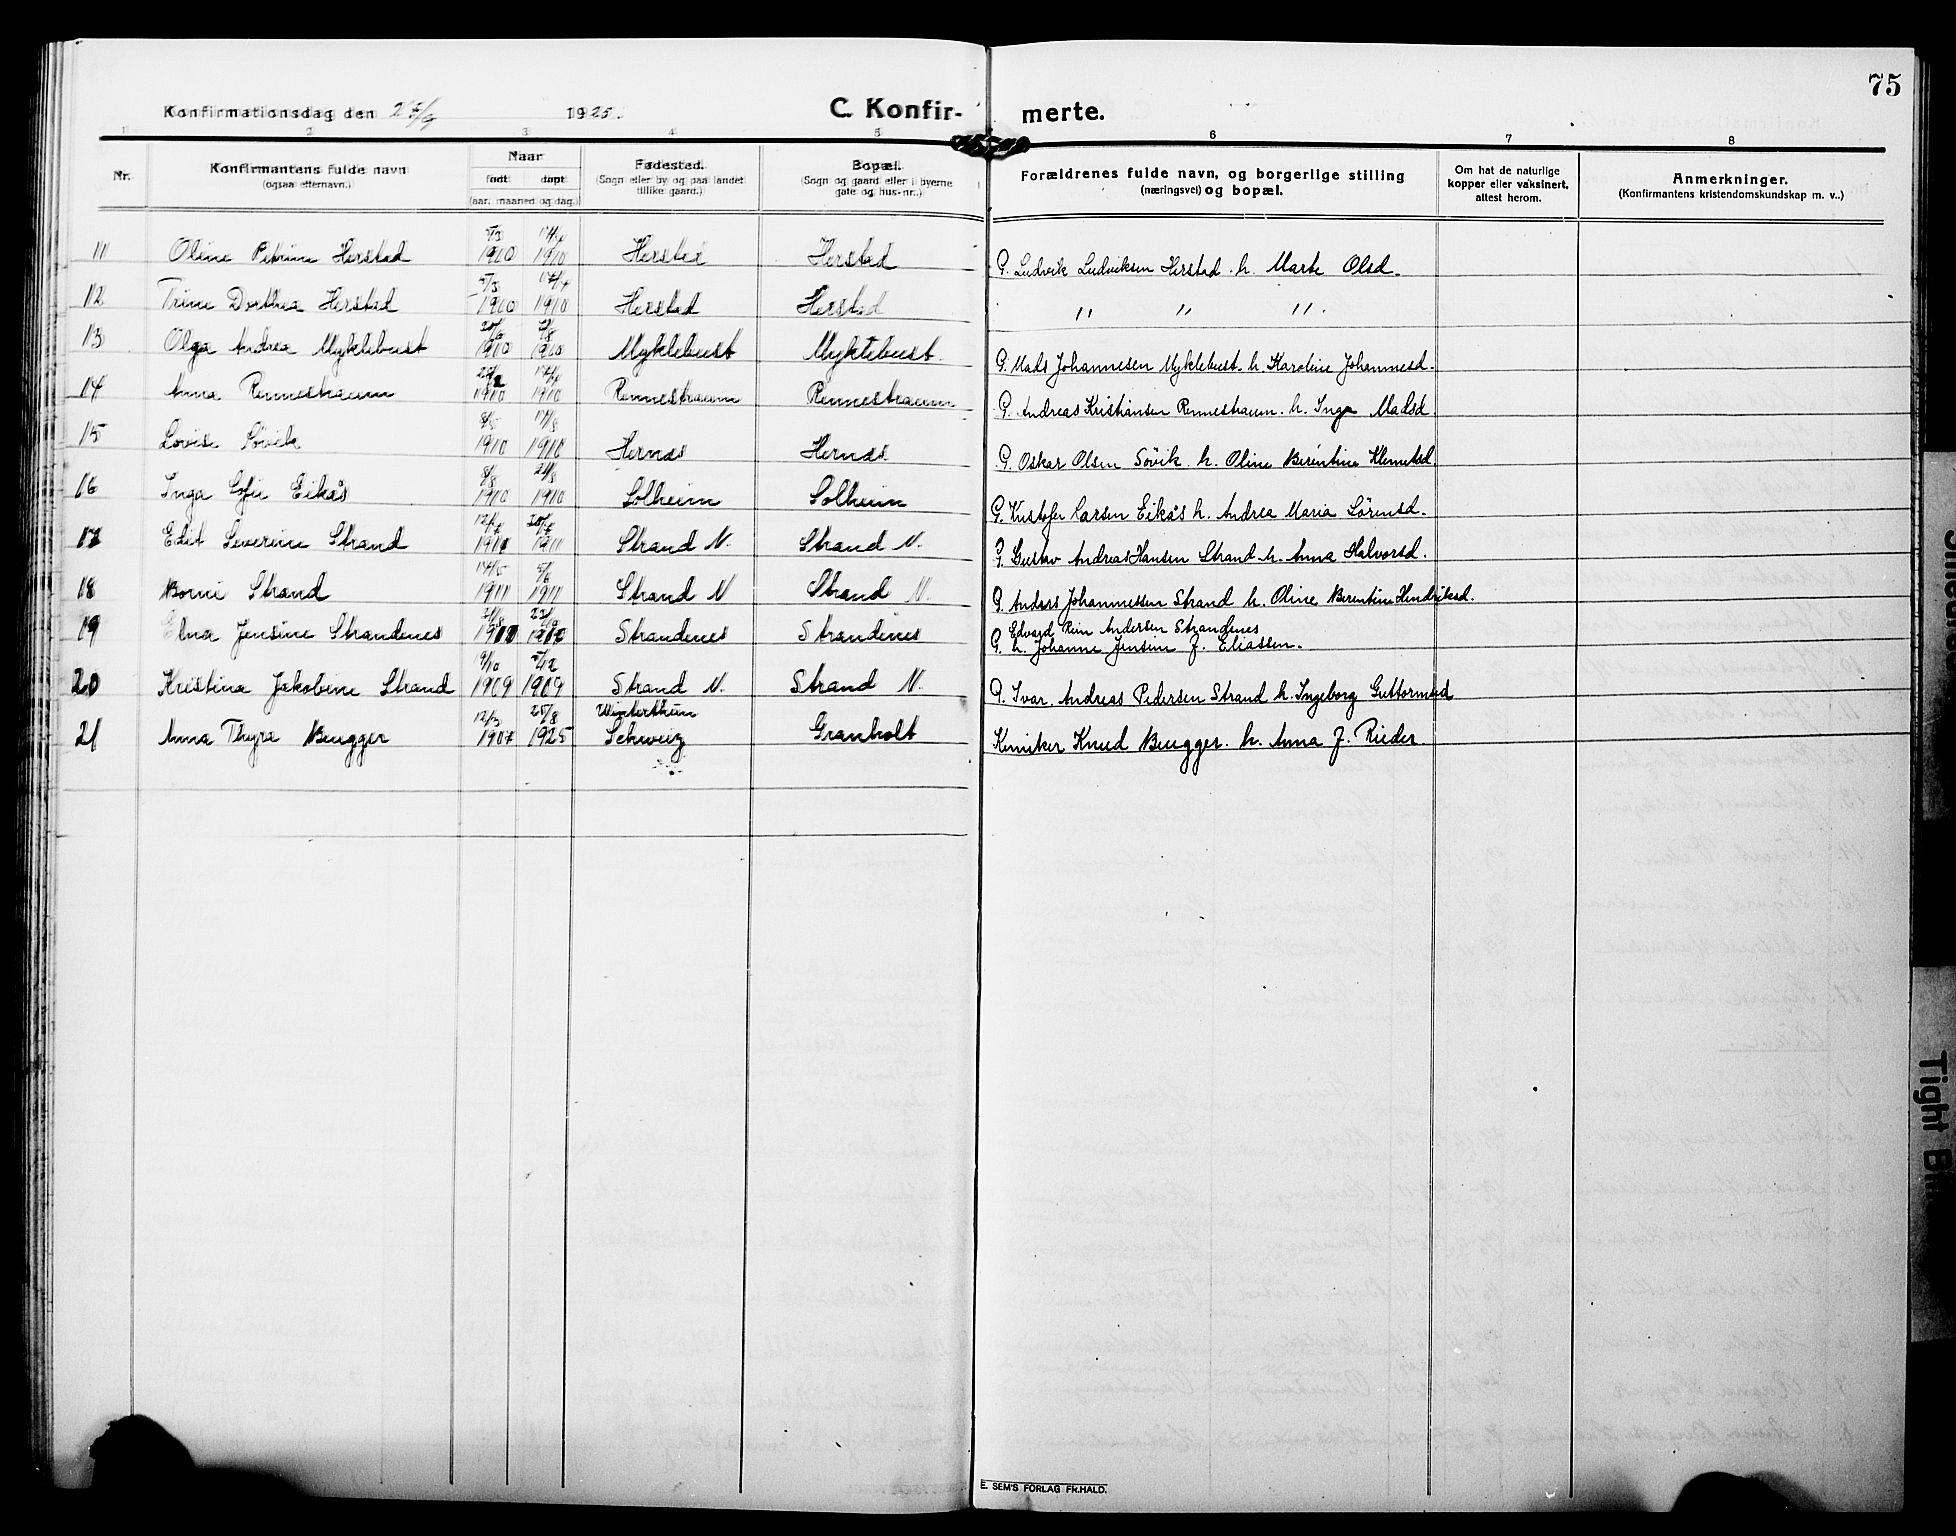 75
Konfirmationsdag den 27/9 1925. C. Konfir- merte.
1 2 3 4 5 6 7 8
Nr. Konfirmantens fulde navn (ogsaa efternavn.) Naar født døpt (aar, maaned og dag.) Fødested. (Sogn eller by og paa landet tillike gaard.) Bopæl. (Sogn og gaard eller i byerne gate og hus-nr.) Forældrenes fulde navn, og borgerlige stilling (næringsvei) og bopæl. Om hat de naturlige kopper eller vaksinert, attest herom. Anmerkninger. (Konfirmantens kristendomskundskap m. v..)
11 Oline Petrine Herstad 5/3 1910 17/4 1910 Herstad Herstad G. Ludvik Ludviksen Herstad h. Marte Olsd.
12 Trine Dorthea Herstad 5/3 1910 17/4 1910 Herstad Herstad " " "
13 Olga Andrea Myklebust 1910 1910 Myklebust Myklebust. G. Mads Johannesen Myklebust. h. Karoline Johannesd.
14 Anna Rennestraum 1910 1910 Rennestraum Rennestraum G. Andreas Kristiansen Rennestraum. h. Inga Madsd.
15 Lovise Søvik 1910 1910 Hernes Hernes. G. Oskar Olsen Søvik. h. Oline Berentina Klemetsd.
16 Inga Sofie Eikås 8/8 1910 21/8 1910 Solheim Solheim G. Kristofer Larsen Eikås h. Andrea Maria Sørensd.
17 Edit Severine Strand 1911 1911 Strand N. Strand N. G. Gustav Andreas Hansen Strand h. Anna Halvorsd.
18 Borni Strand 14/5 1911 5/6 1911 Strand N Strand N. G. Anders Johannessen Strand h. Oline Berentine Hendriksd.
19 Elna Jensine Strandenes Strandenes Strandenes G. Edvard Reim Andersen Strandenes
h. Johanne Jensine f. Eliassen.
20 Kristina Jakobine Strand 9/10 1909 1909 Strand N. Strand N. G. Ivar Andreas Pedersen Strand h. Ingeborg Guttormsd
21 Anna Thyra Brugger 12/3 1907 25/8 1925 Winterthur Schweiz Granholt Kemiker Knud Brugger. h. Anna f. Rieder.
E. SEM'S FORLAG FR.HALD.
Tight